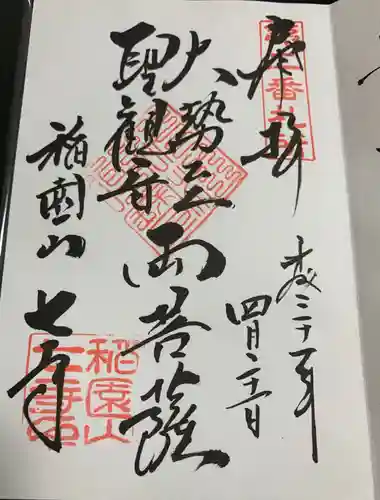 奉拝
平成二十一年
四月二十一日
大勢至
聖観音
両菩薩
稲園山
七寺
稲園山
七寺印